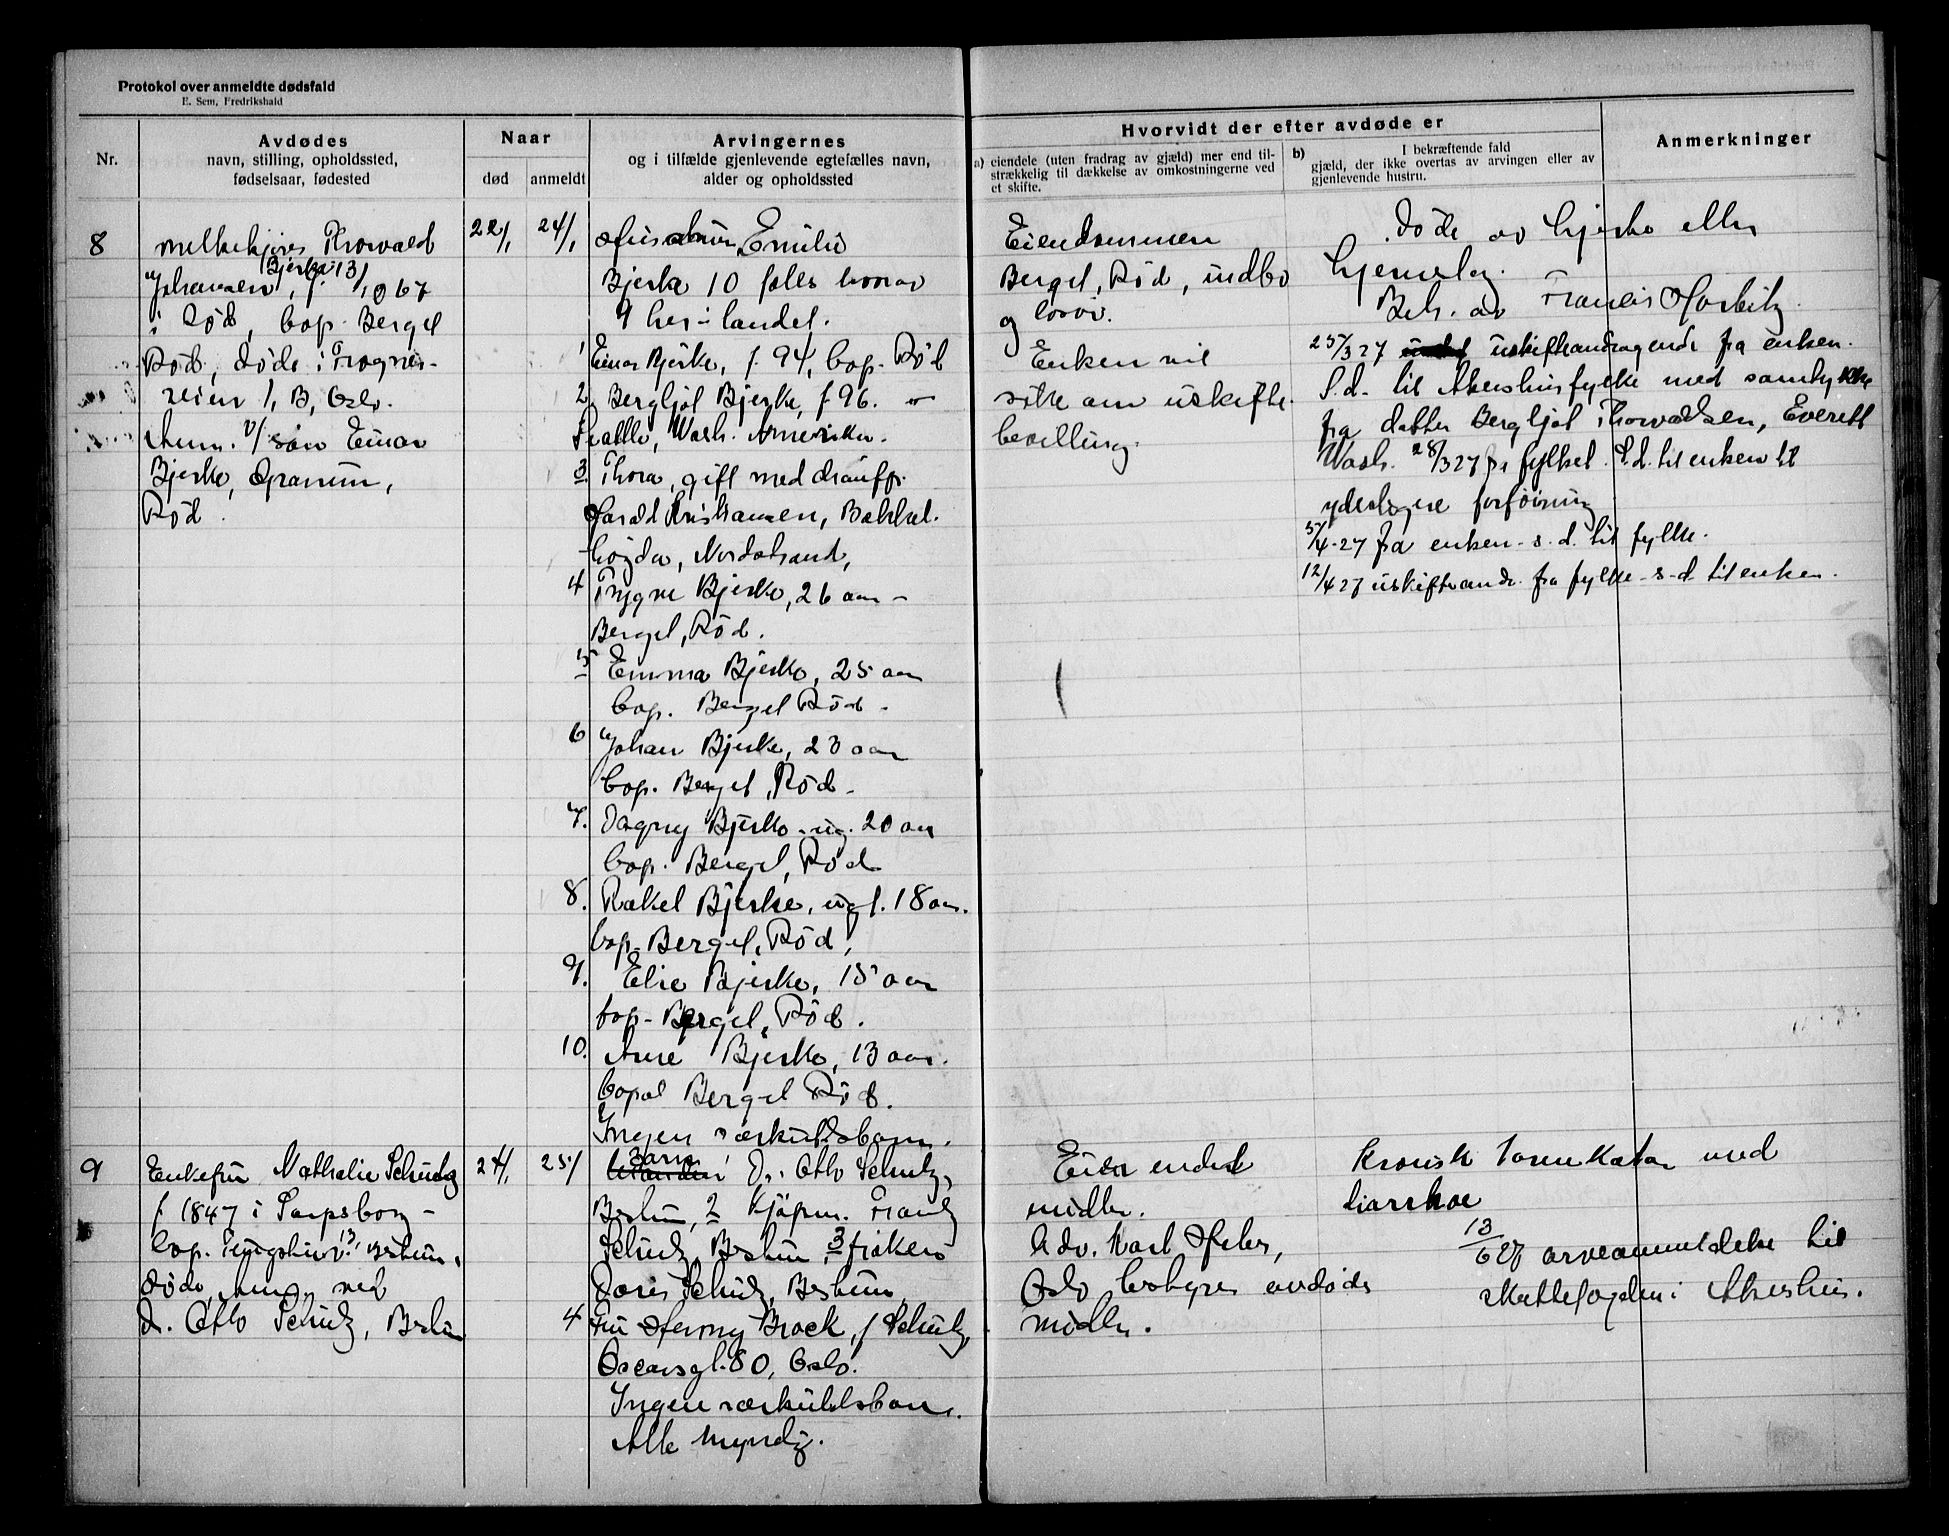 Protokol over anmeldte dødsfald
E. Sem, Fredrikshald
Nr.
Avdødes
navn, stilling, opholdssted,
fødselsaar, fødested
Naar
død
anmeldt
Arvingernes
og i tilfælde gjenlevende egtefælles navn,
alder og opholdssted
Hvorvidt der efter avdøde er
a) eiendele (uten fradrag av gjæld) mer end til-
strækkelig til dækkelse av omkostningerne ved
et skifte.
b) I bekræftende fald
gjæld, der ikke overtas av arvingen eller av
gjenlevende hustru.
Anmerkninger
8
melkekjører Thorvald
Johansen Bjerke, f. 13/
i Röd, bop. Bergel
Röd, døde i Frogner-
veien 1, B, Oslo.
Anm. v/ søn Einar
Bjerke, Granum,
Röd.
22/1
24/1
Emilie
Bjerke 10 felles hvorav
9 her i landet.
1 Einar Bjerke, f. 94, bop. Röd
2 Bergljot Bjerke, f 96. -
Seattle, Wash. Amerika.
3. Thora, gift med
Harald Kristiansen, Bækkel.
högda, Nordstrand,
4 Trygve Bjerke, 26 aar -
Bergel, Röd.
5 Emma Bjerke, 25 aar
bop. Bergel Röd -
6 Johan Bjerke, 23 aar
bop. Bergel, Röd -
7. Dagny Bjerke - ug. 20 aar
bop. Bergel, Röd
8. Rakel Bjerke, ugf. 18 aar.
bop. Bergel, Röd,
9. Else Bjerke, 15 aar
bop - Bergel, Röd.
10. Arne Bjerke, 13 aar.
bopæl Bergel Röd.
Ingen særkuldsbarn.
Eiendommen
Bergel, Röd, indbo
og lösöre.
Enken vil
sitte om uskifte-
bevilling.
Døde av hjerte eller
hjerneslag.
Beh. av Francis Harbitz.
25/3 27 uskifteandragende fra enken.
S.d. til Akershus fylke med samtykke
fra datter Bergljot Thorvaldsen, Everett
Wash. 28/3 27 fra fylket. S.d. til enken til
yderligere forføining
5/4-27 fra enken - s.d. til fylke.
12/4 27 uskifteandr. fra fylke - s-d til enken.
9
Enkefru Nathalie Schultz
f 1847 i Sarpsborg -
bop. Bestum,
døde, Anm. ved
dr. Otto Schultz, Bestum
24/1
25/1
Barn Dr. Otto Schultz,
Bestum, 2 Kjöpm. Frantz
Schultz, Bestum, 3 fröken
Doris Schultz, Bestum,
4 Fru Henny Brock, f Schultz,
Oscarsgt. 80, Oslo.
Ingen særkuldsbarn.
Alle myndig.
Eier endel
midler.
Adv. Karl
Oslo bestyrer avdødes
midler.
Kronisk tarmkatar med
diarrhoe
13/6 27 arveanmeldelse til
skattefogden i Akershus.